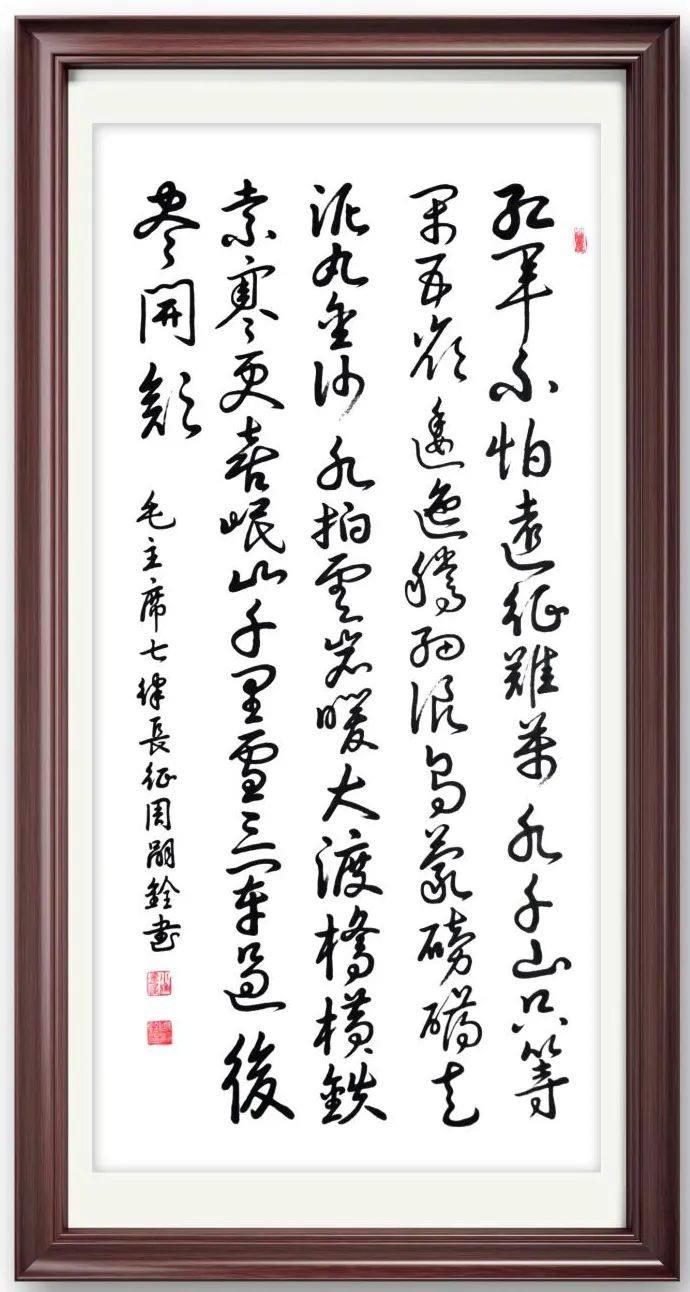 紅軍不怕遠征難萬水千山只等
閑五嶺逶迤騰細浪烏蒙磅礴走
泥丸金沙水拍雲崖暖大渡橋橫鉄
索寒更喜岷山千里雪三軍過後
盡開顏
毛主席七律長征周嗣銓書